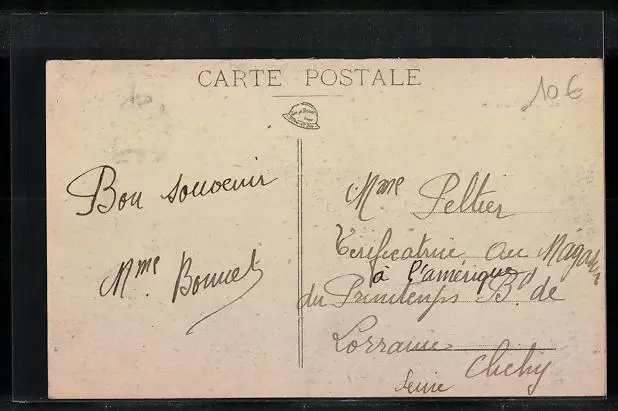 CARTE POSTALE
10 €
Bon souvenir
Mme Bonnet
Mme Peltier
Vérificatrice au Magasin
à l'amérique
du Printemps Bd de
Lorraine Clichy
Seine